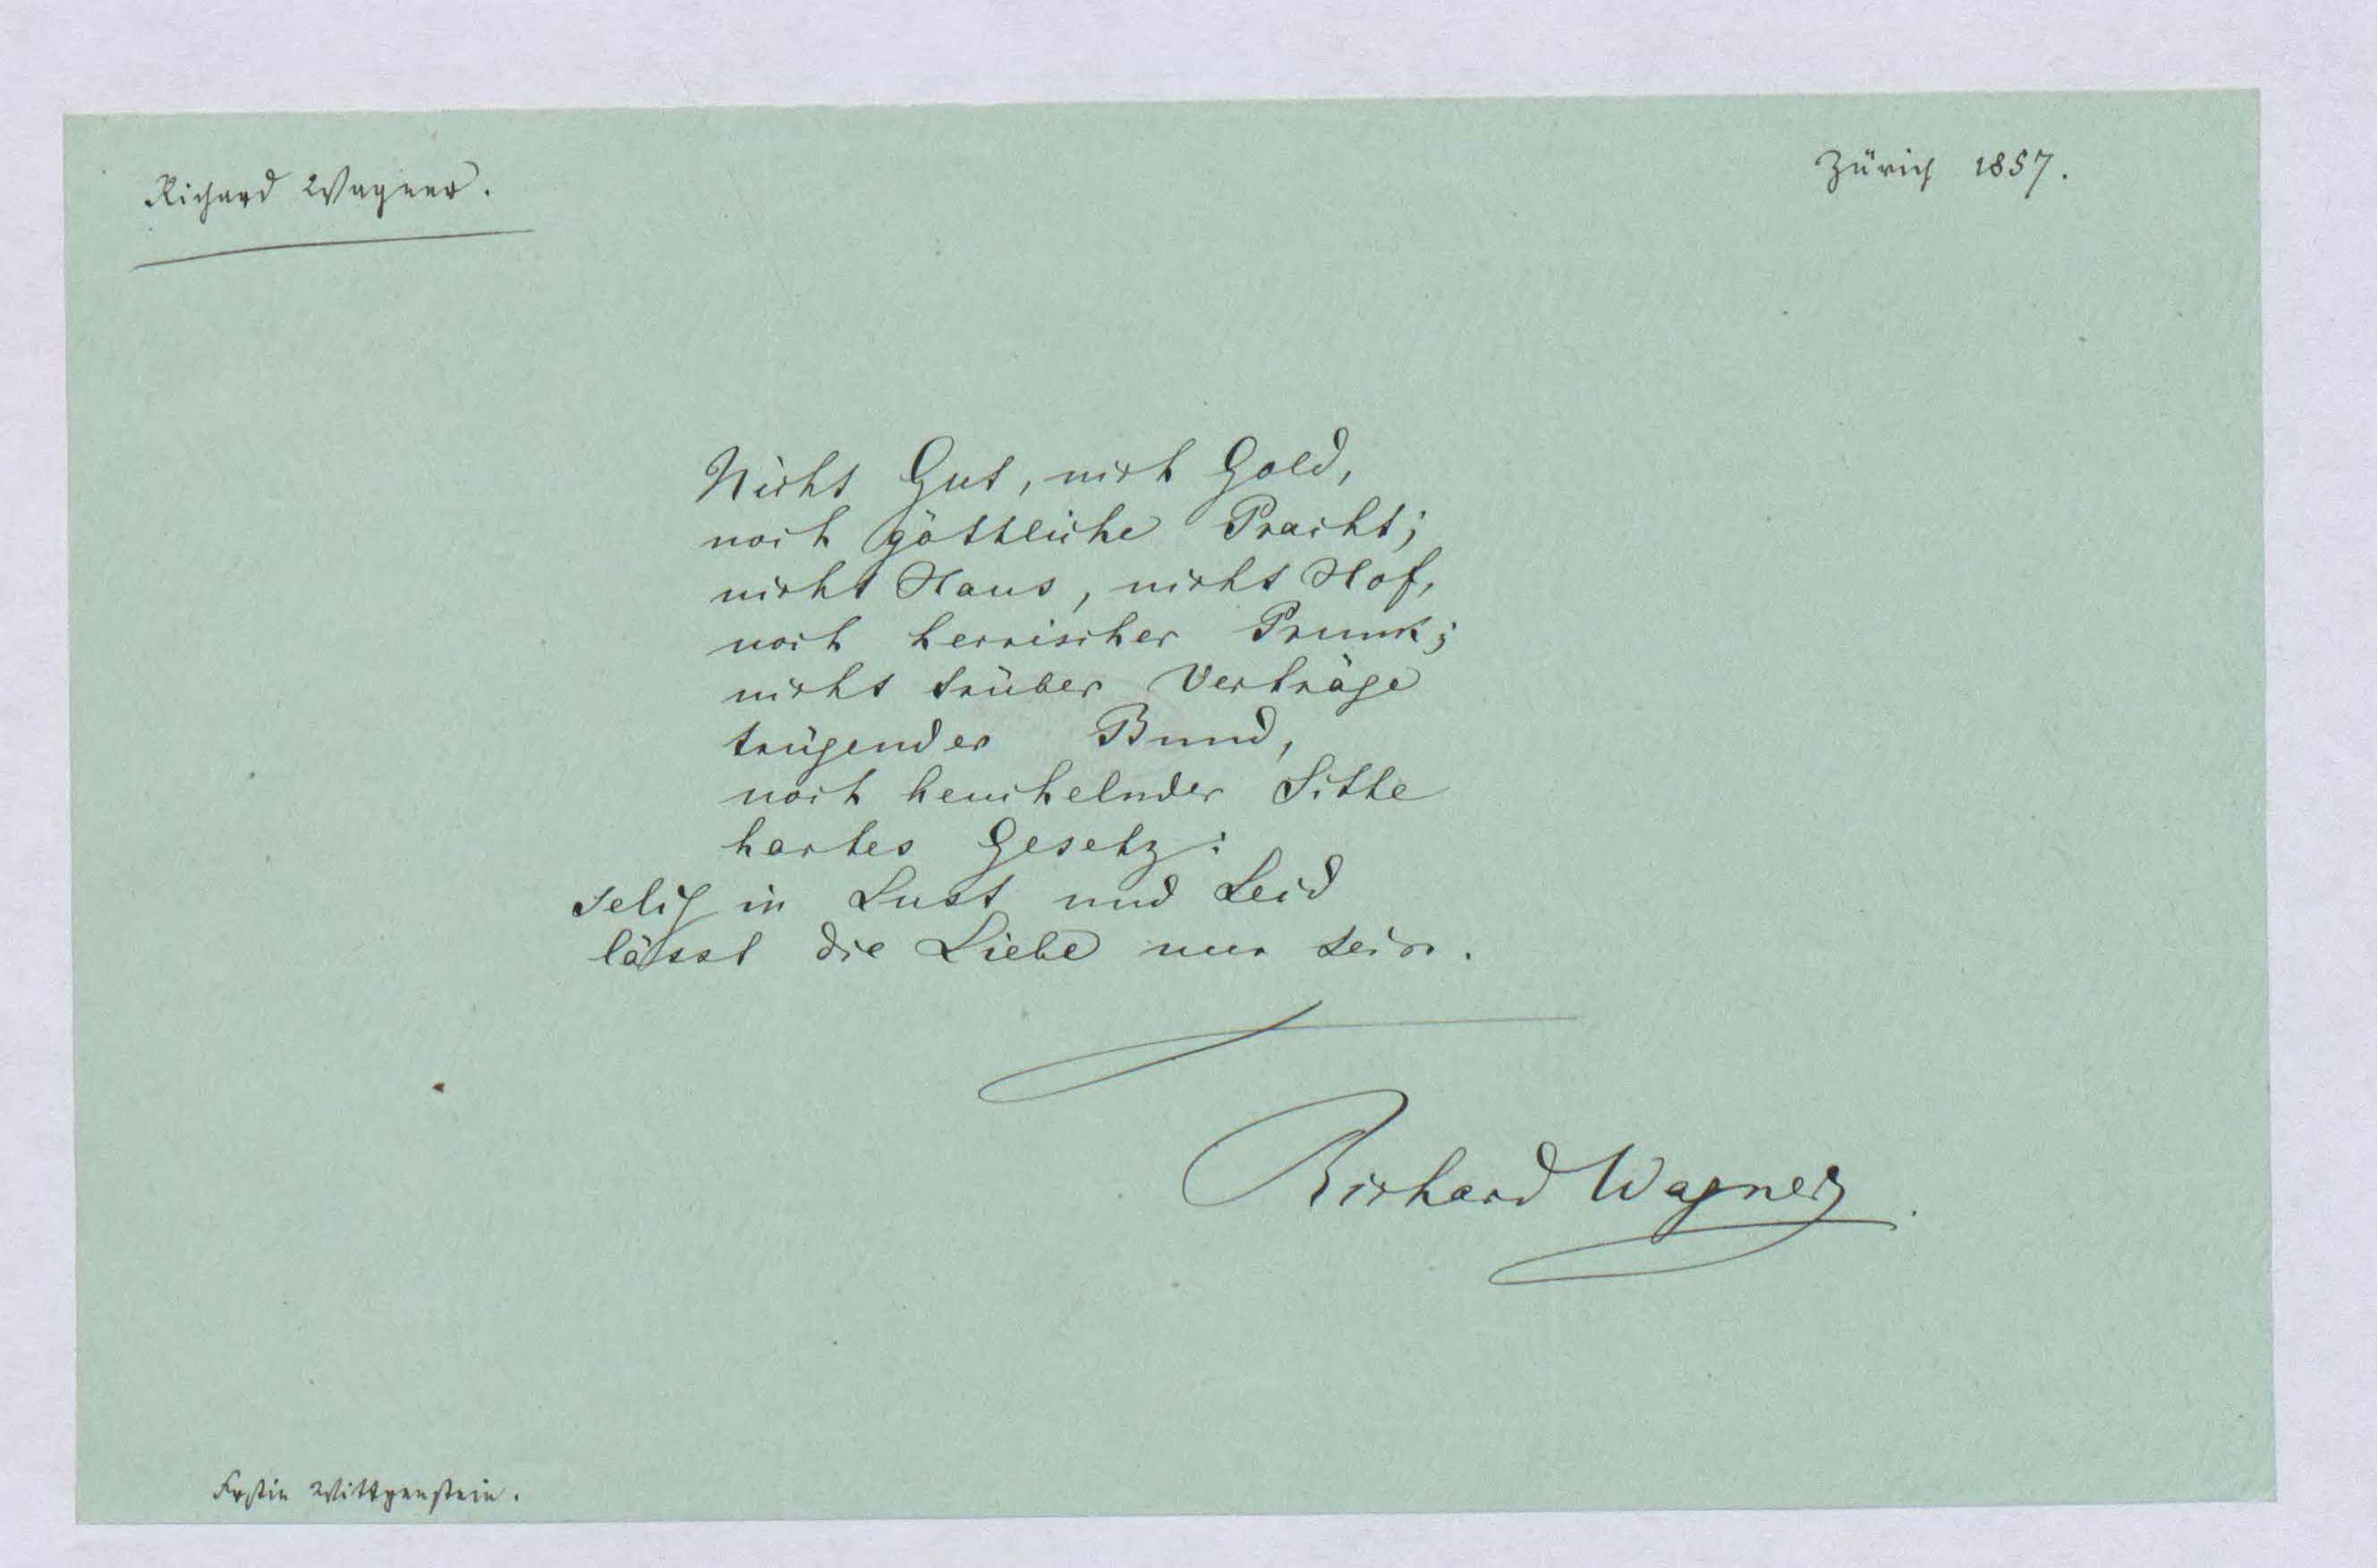 Richard Wagner.
Zürich 1857.
Nicht Gut, nicht Gold,
noch göttliche Pracht;
nicht Haus, nicht Hof,
noch herrischer Prunk;
nicht trüber Verträge
trügender Bund,
noch heuchelnder Sitte
hartes Gesetz:
selig in Lust und Leid
lässt die Liebe nur sein.
Richard Wagner.
Frstin Wittgenstein.